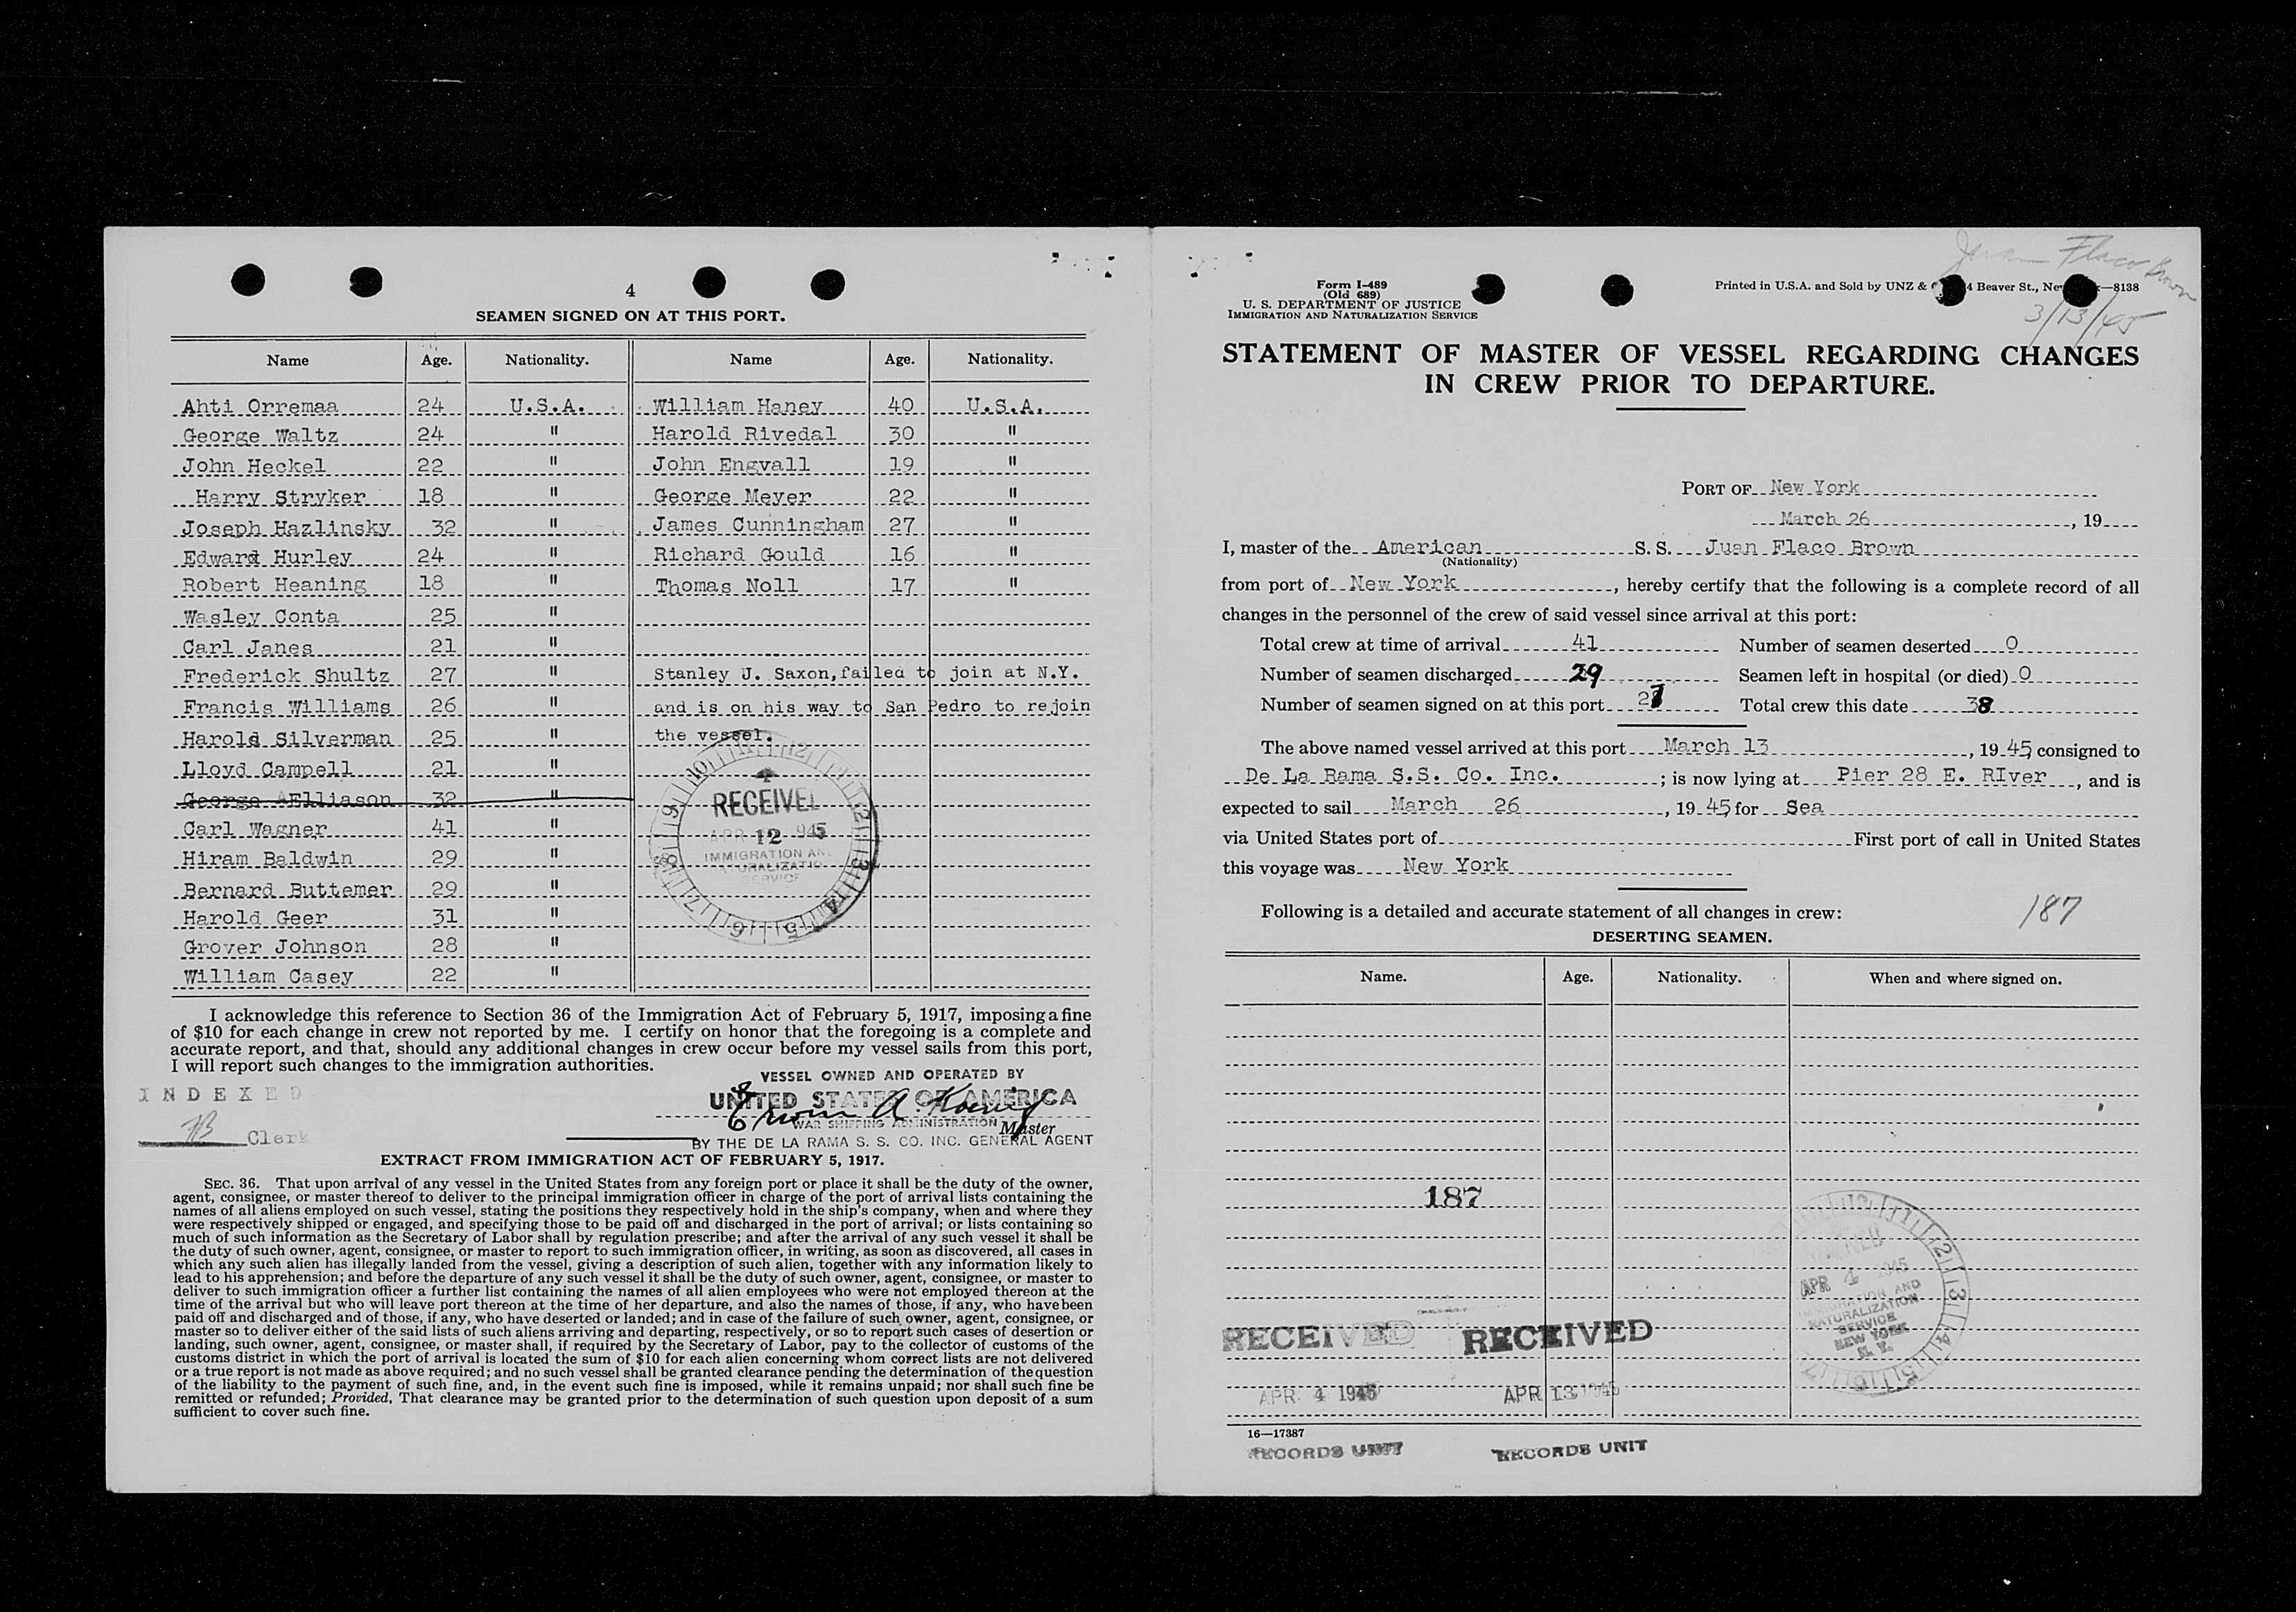 4
SEAMEN SIGNED ON AT THIS PORT.
Name Age. Nationality. Name Age. Nationality.
Ahti Orremaa 24 U.S.A. William Haney 40 U.S.A.
George Waltz 24 " Harold Rivedal 30 "
John Heckel 22 " John Engvall 19 "
Harry Stryker 18 " George Meyer 22 "
Joseph Hazlinsky 32 " James Cunningham 27 "
Edward Hurley 24 " Richard Gould 16 "
Robert Heaning 18 " Thomas Noll 17 "
Wasley Conta 25 "
Carl Janes 21 "
Frederick Shultz 27 " Stanley J. Saxon, failed to join at N.Y.
Francis Williams 26 " and is on his way to San Pedro to rejoin
Harold Silverman 25 " the vessel.
Lloyd Campell 21 "
George A Elliason 32 "
Carl Wagner 41 "
Hiram Baldwin 29 "
Bernard Buttemer 29 "
Harold Geer 31 "
Grover Johnson 28 "
William Casey 22 "
RECEIVED
APR 12 1945
IMMIGRATION AND
NATURALIZATION
SERVICE
I acknowledge this reference to Section 36 of the Immigration Act of February 5, 1917, imposing a fine
of $10 for each change in crew not reported by me. I certify on honor that the foregoing is a complete and
accurate report, and that, should any additional changes in crew occur before my vessel sails from this port,
I will report such changes to the immigration authorities.
VESSEL OWNED AND OPERATED BY
UNITED STATES OF AMERICA
Erwin A.
WAR SHIPPING ADMINISTRATION Master
BY THE DE LA RAMA S. S. CO. INC. GENERAL AGENT
INDEXED
Clerk
EXTRACT FROM IMMIGRATION ACT OF FEBRUARY 5, 1917.
SEC. 36. That upon arrival of any vessel in the United States from any foreign port or place it shall be the duty of the owner,
agent, consignee, or master thereof to deliver to the principal immigration officer in charge of the port of arrival lists containing the
names of all aliens employed on such vessel, stating the positions they respectively hold in the ship's company, when and where they
were respectively shipped or engaged, and specifying those to be paid off and discharged in the port of arrival; or lists containing so
much of such information as the Secretary of Labor shall by regulation prescribe; and after the arrival of any such vessel it shall be
the duty of such owner, agent, consignee, or master to report to such immigration officer, in writing, as soon as discovered, all cases in
which any such alien has illegally landed from the vessel, giving a description of such alien, together with any information likely to
lead to his apprehension; and before the departure of any such vessel it shall be the duty of such owner, agent, consignee, or master to
deliver to such immigration officer a further list containing the names of all alien employees who were not employed thereon at the
time of the arrival but who will leave port thereon at the time of her departure, and also the names of those, if any, who have been
paid off and discharged and of those, if any, who have deserted or landed; and in case of the failure of such owner, agent, consignee, or
master so to deliver either of the said lists of such aliens arriving and departing, respectively, or so to report such cases of desertion or
landing, such owner, agent, consignee, or master shall, if required by the Secretary of Labor, pay to the collector of customs of the
customs district in which the port of arrival is located the sum of $10 for each alien concerning whom correct lists are not delivered
or a true report is not made as above required; and no such vessel shall be granted clearance pending the determination of the question
of the liability to the payment of such fine, and, in the event such fine is imposed, while it remains unpaid; nor shall such fine be
remitted or refunded; Provided, That clearance may be granted prior to the determination of such question upon deposit of a sum
sufficient to cover such fine.
Juan Flaco Brown
3/13/45
Form I-489
(Old 689)
U. S. DEPARTMENT OF JUSTICE
IMMIGRATION AND NATURALIZATION SERVICE
Printed in U.S.A. and Sold by UNZ & 4 Beaver St., New —8138
STATEMENT OF MASTER OF VESSEL REGARDING CHANGES
IN CREW PRIOR TO DEPARTURE.
PORT OF New York
March 26, 19
I, master of the American S. S. Juan Flaco Brown
(Nationality)
from port of New York, hereby certify that the following is a complete record of all
changes in the personnel of the crew of said vessel since arrival at this port:
Total crew at time of arrival 41 Number of seamen deserted 0
Number of seamen discharged 29 Seamen left in hospital (or died) 0
Number of seamen signed on at this port 27 Total crew this date 38
The above named vessel arrived at this port March 13, 1945 consigned to
De La Rama S.S. Co. Inc.; is now lying at Pier 28 E. RIver, and is
expected to sail March 26, 1945 for Sea
via United States port of First port of call in United States
this voyage was New York
Following is a detailed and accurate statement of all changes in crew: 187
DESERTING SEAMEN.
Name. Age. Nationality. When and where signed on.
187
APR 4 1945
IMMIGRATION AND
NATURALIZATION
SERVICE
NEW YORK
N. Y.
RECEIVED RECEIVED
APR 4 1945 APR 13 1945
16—17387
RECORDS UNIT RECORDS UNIT